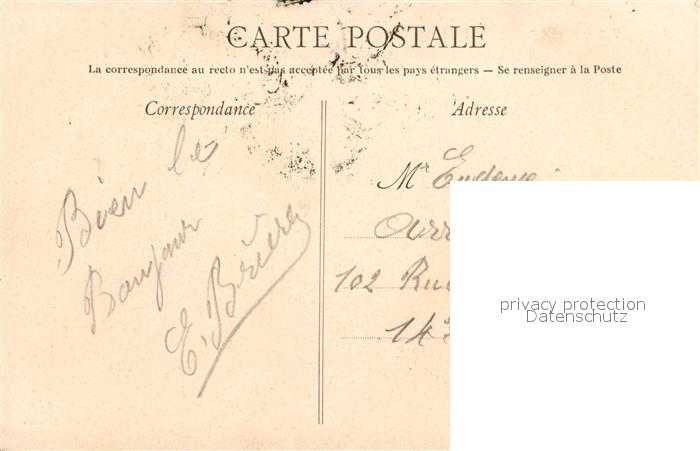 CARTE POSTALE
La correspondance au recto n'est pas acceptée par tous les pays étrangers — Se renseigner à la Poste
Correspondance
Bien le
Bonjour
E. Brière
Adresse
Mr
102 Rue
14
privacy protection
Datenschutz